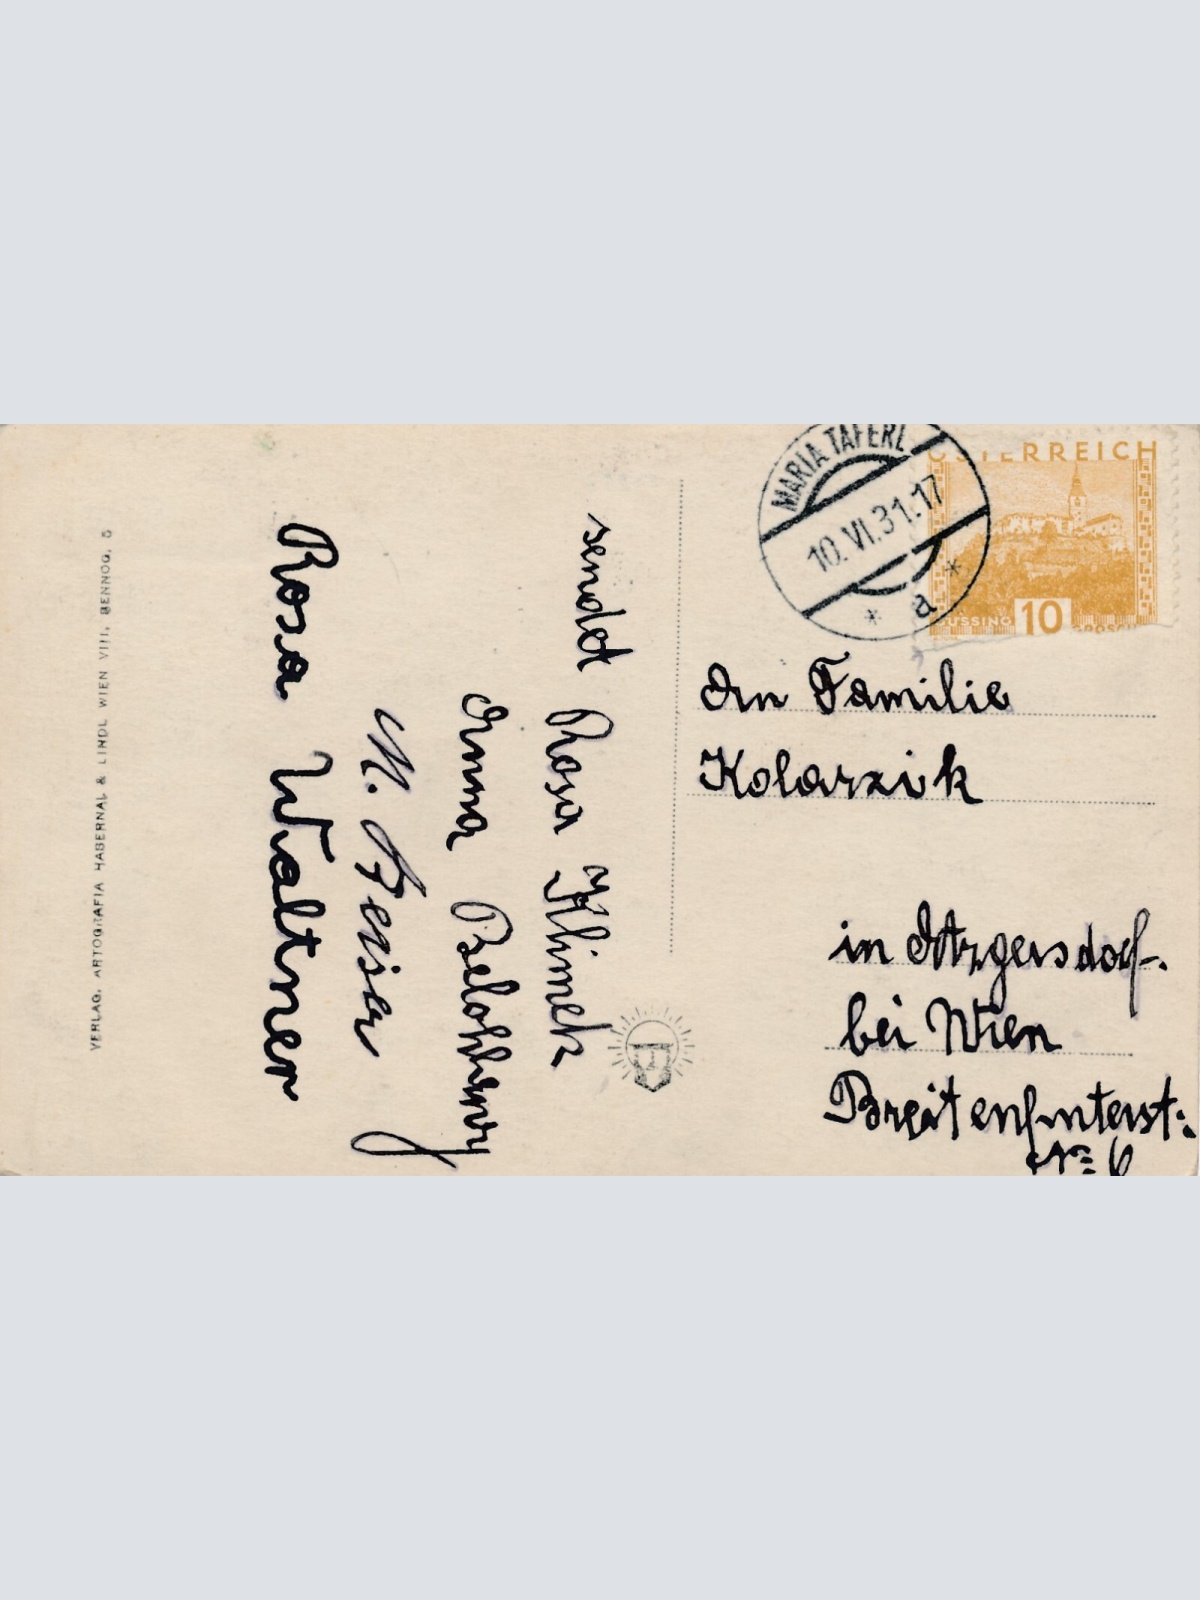 VERLAG, ARTOGRAFIA HABERNAL & LINDL WIEN VIII, BENNOG. 5
sendet
Rosa Klimek
Anna
Rosa Waltner
MARIA TAFERL
10. VI. 31. 17
* a *
ÖSTERREICH
GÜSSING 10 GROSCHEN
An Familie
Kolarzik
in Atzgersdorf.
bei Wien
Breitenfurterst:
№ 6